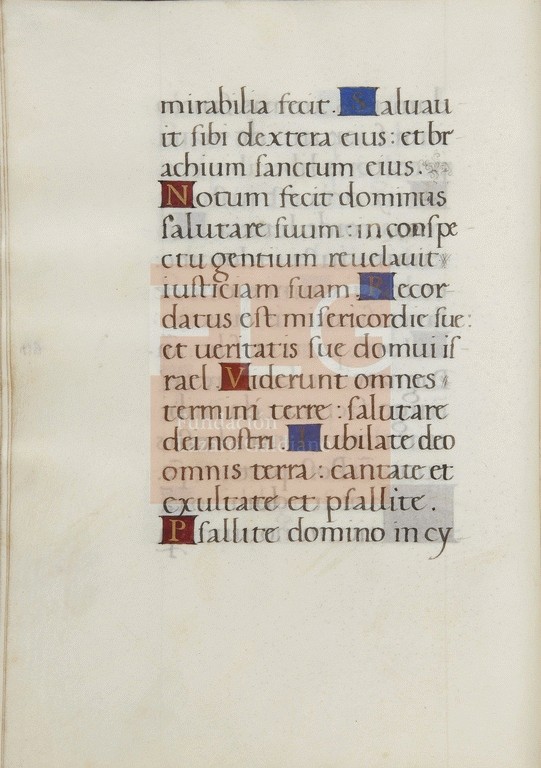 mirabilia fecit. Saluau
it sibi dextera eius: et br
achium sanctum eius.
Notum fecit dominus
salutare suum: in conspe
ctu gentium reuelauit
iusticiam suam. Recor
datus est misericordie sue:
et ueritatis sue domui is
rael. Viderunt omnes
termini terre: salutare
dei nostri. Iubilate deo
omnis terra: cantate et
exultate et psallite.
Psallite domino in cy
FLG
Fundación
Lázaro Galdiano